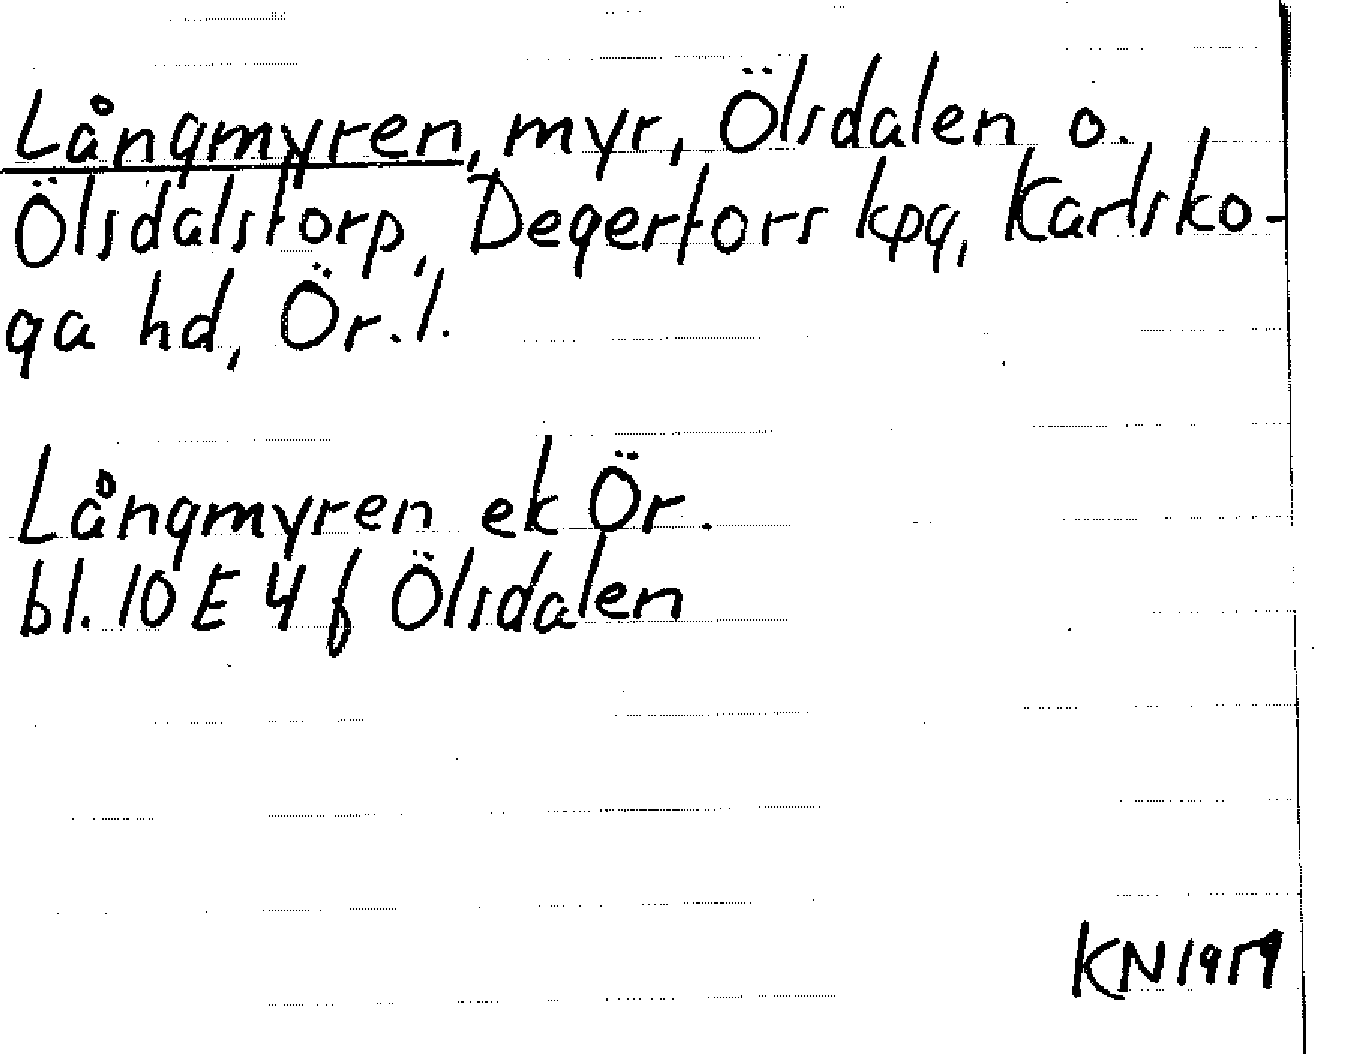 Långmyren, myr, Ölsdalen o.
Ölsdalstorp, Degerfors kpg, Karlsko-
ga hd, Ör. l.
Långmyren ek Ör.
bl. 10 E 4 f Ölsdalen
KN 1979